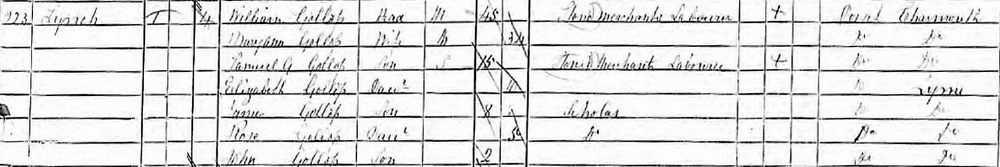 223 Lynch 1 4 William Gollop Head M 45 Stone Merchants Labourer + Dorset Charmouth
Maryann Gollop Wife M 34 Do Do
Samuel G Gollop Son S 15 Stone Merchants Labourer + Do Do
Elizabeth Gollop Daur 11 Do Lyme
James Gollop Son 8 Scholar Do Do
Rose Gollop Daur 5 Do Do Do
John Gollop Son 2 Do Do